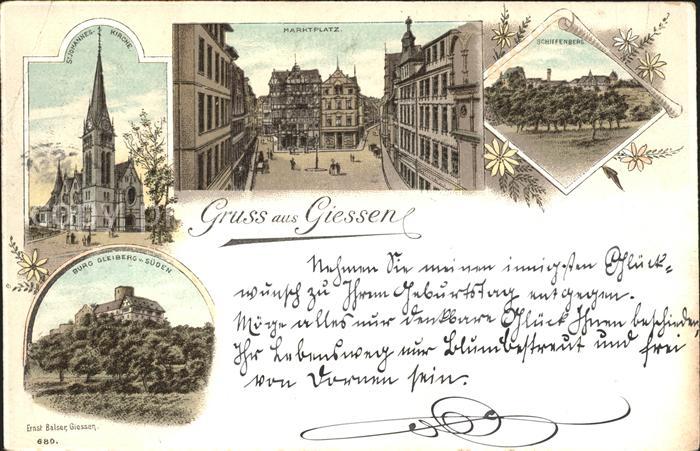 ST. JOHANNES-KIRCHE
MARKTPLATZ.
SCHIFFENBERG
Gruss aus Giessen
BURG GLEIBERG v. SÜDEN
Nehmen Sie meinen innigsten Glück-
wunsch zu Ihrem Geburtstag entgegen.
Möge alles nur denkbare Glück Ihnen beschieden,
Ihr Lebensweg nur Blumbestreut und frei
von Dornen sein.
Ernst Balser, Giessen.
680.